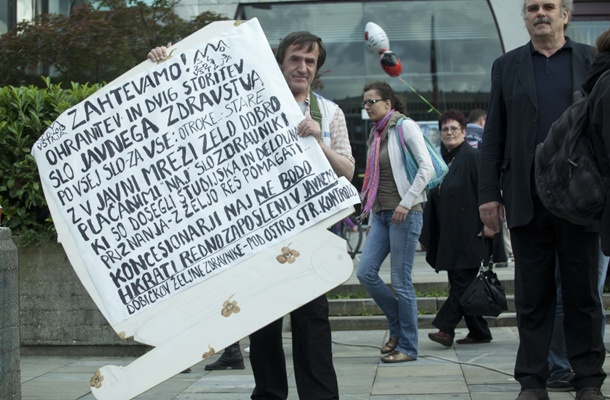 ZAHTEVAMO!
OHRANITEV IN DVIG STORITEV
SLO JAVNEGA ZDRAVSTVA
PO VSEJ SLO-ZA VSE: OTROKE-STARE
Z V JAVNI MREŽI ZELO DOBRO
PLAČANIMI "NAJ" SLO ZDRAVNIKI
KI SO DOSEGLI ŠTUDIJSKA IN DELOVNA
PRIZNANJA-Z ŽELJO RES POMAGATI
KONCESIONARJI NAJ NE BODO
HKRATI REDNO ZAPOSLENI V JAVNEM
DOBIČKOV ŽELJNE ZDRAVNIKE-POD OSTRO STR. KONTROLO